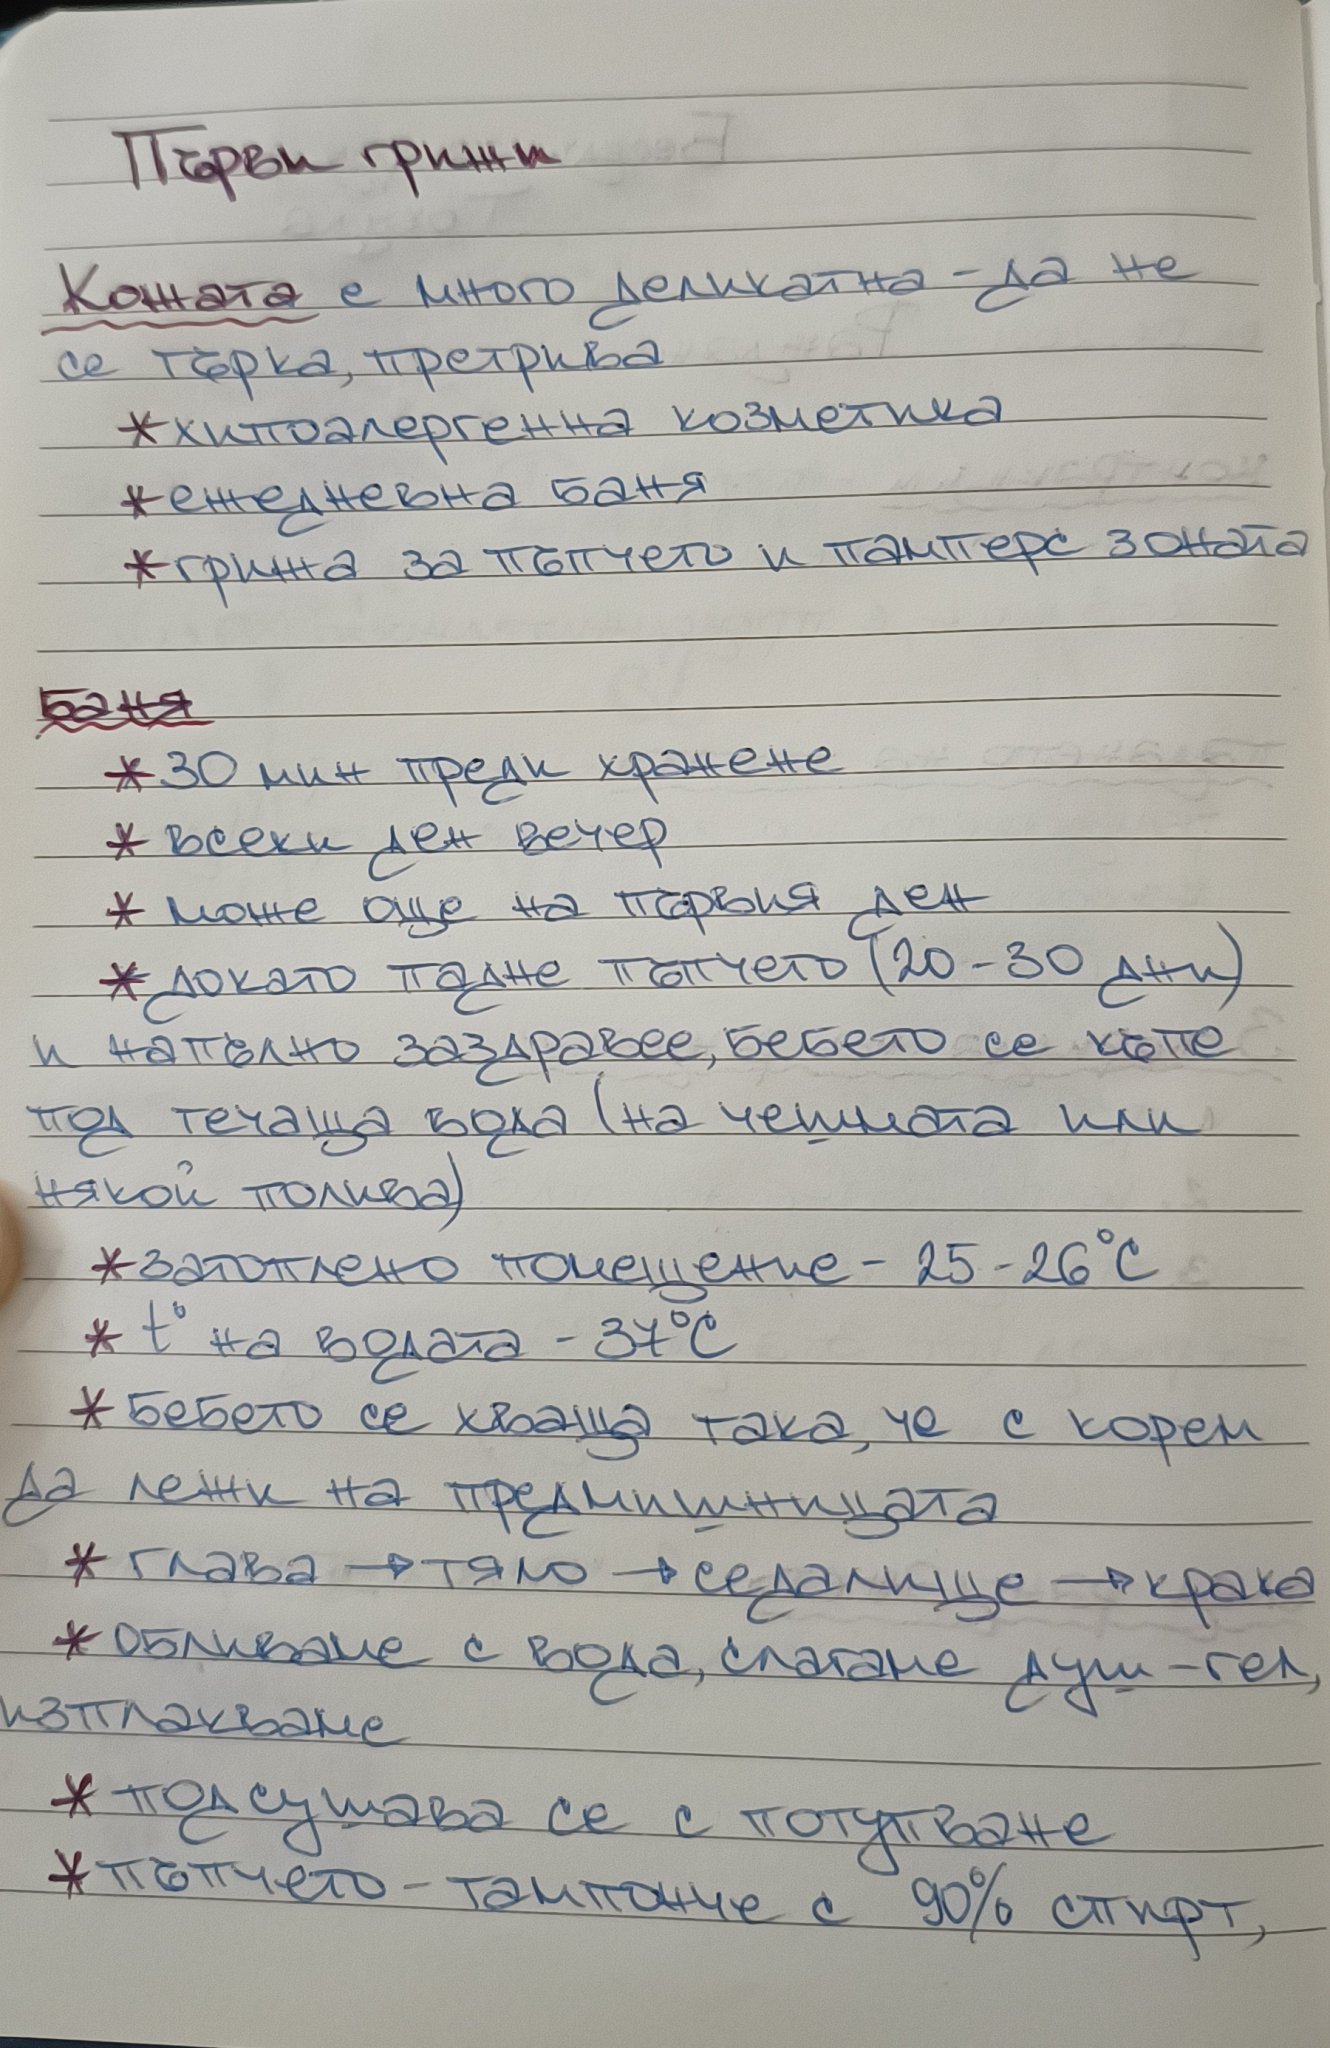 Първи грижи
Кожата е много деликатна - да не
се търка, претрива
* хипоалергенна козметика
* ежедневна баня
* грижа за пъпчето и памперс зоната
Баня
* 30 мин преди хранене
* всеки ден вечер
* може още на първия ден
* докато падне пъпчето (20-30 дни)
и напълно заздравее, бебето се къпе
под течаща вода (на чешмата или
някой полива)
* затоплено помещение - 25-26°C
* t° на водата - 37°C
* бебето се хваща така, че с корем
да лежи на предмишницата
* глава → тяло → седалище → крака
* обливане с вода, слагане душ-гел,
изплакване
* подсушава се с потупване
* пъпчето - тампонче с 90% спирт,